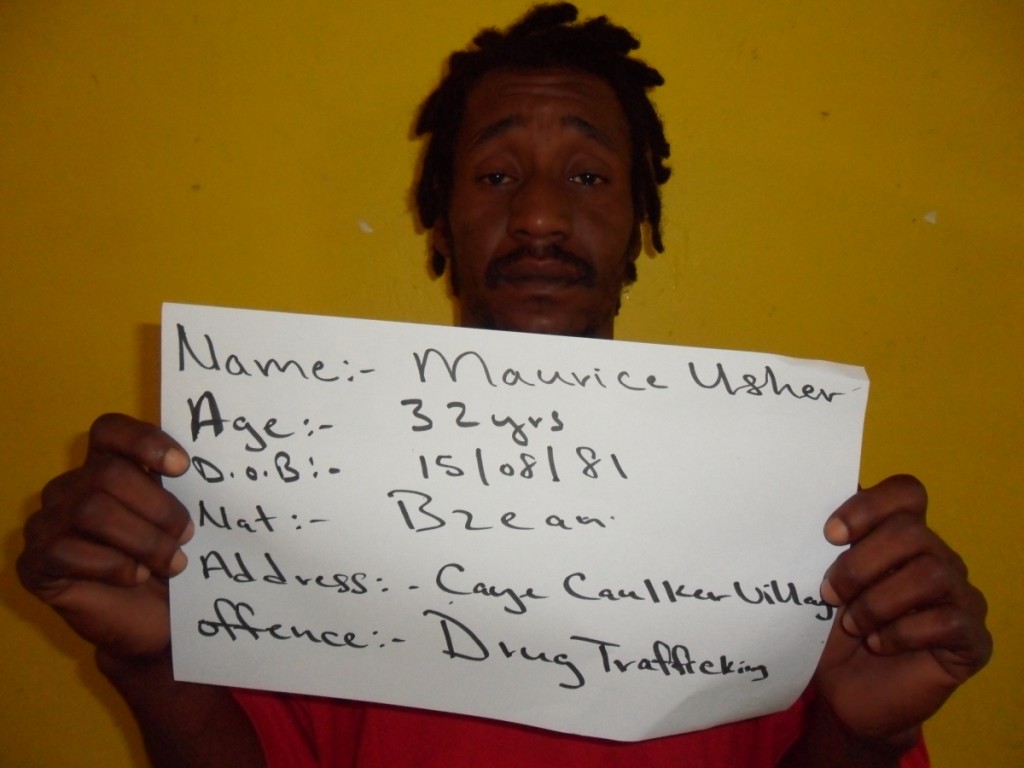 Name:- Maurice Usher
Age:- 32 yrs
D.o.B:- 15/08/81
Nat:- Bzean.
Address:- Caye Caulker Village
offence:- Drug Trafficking